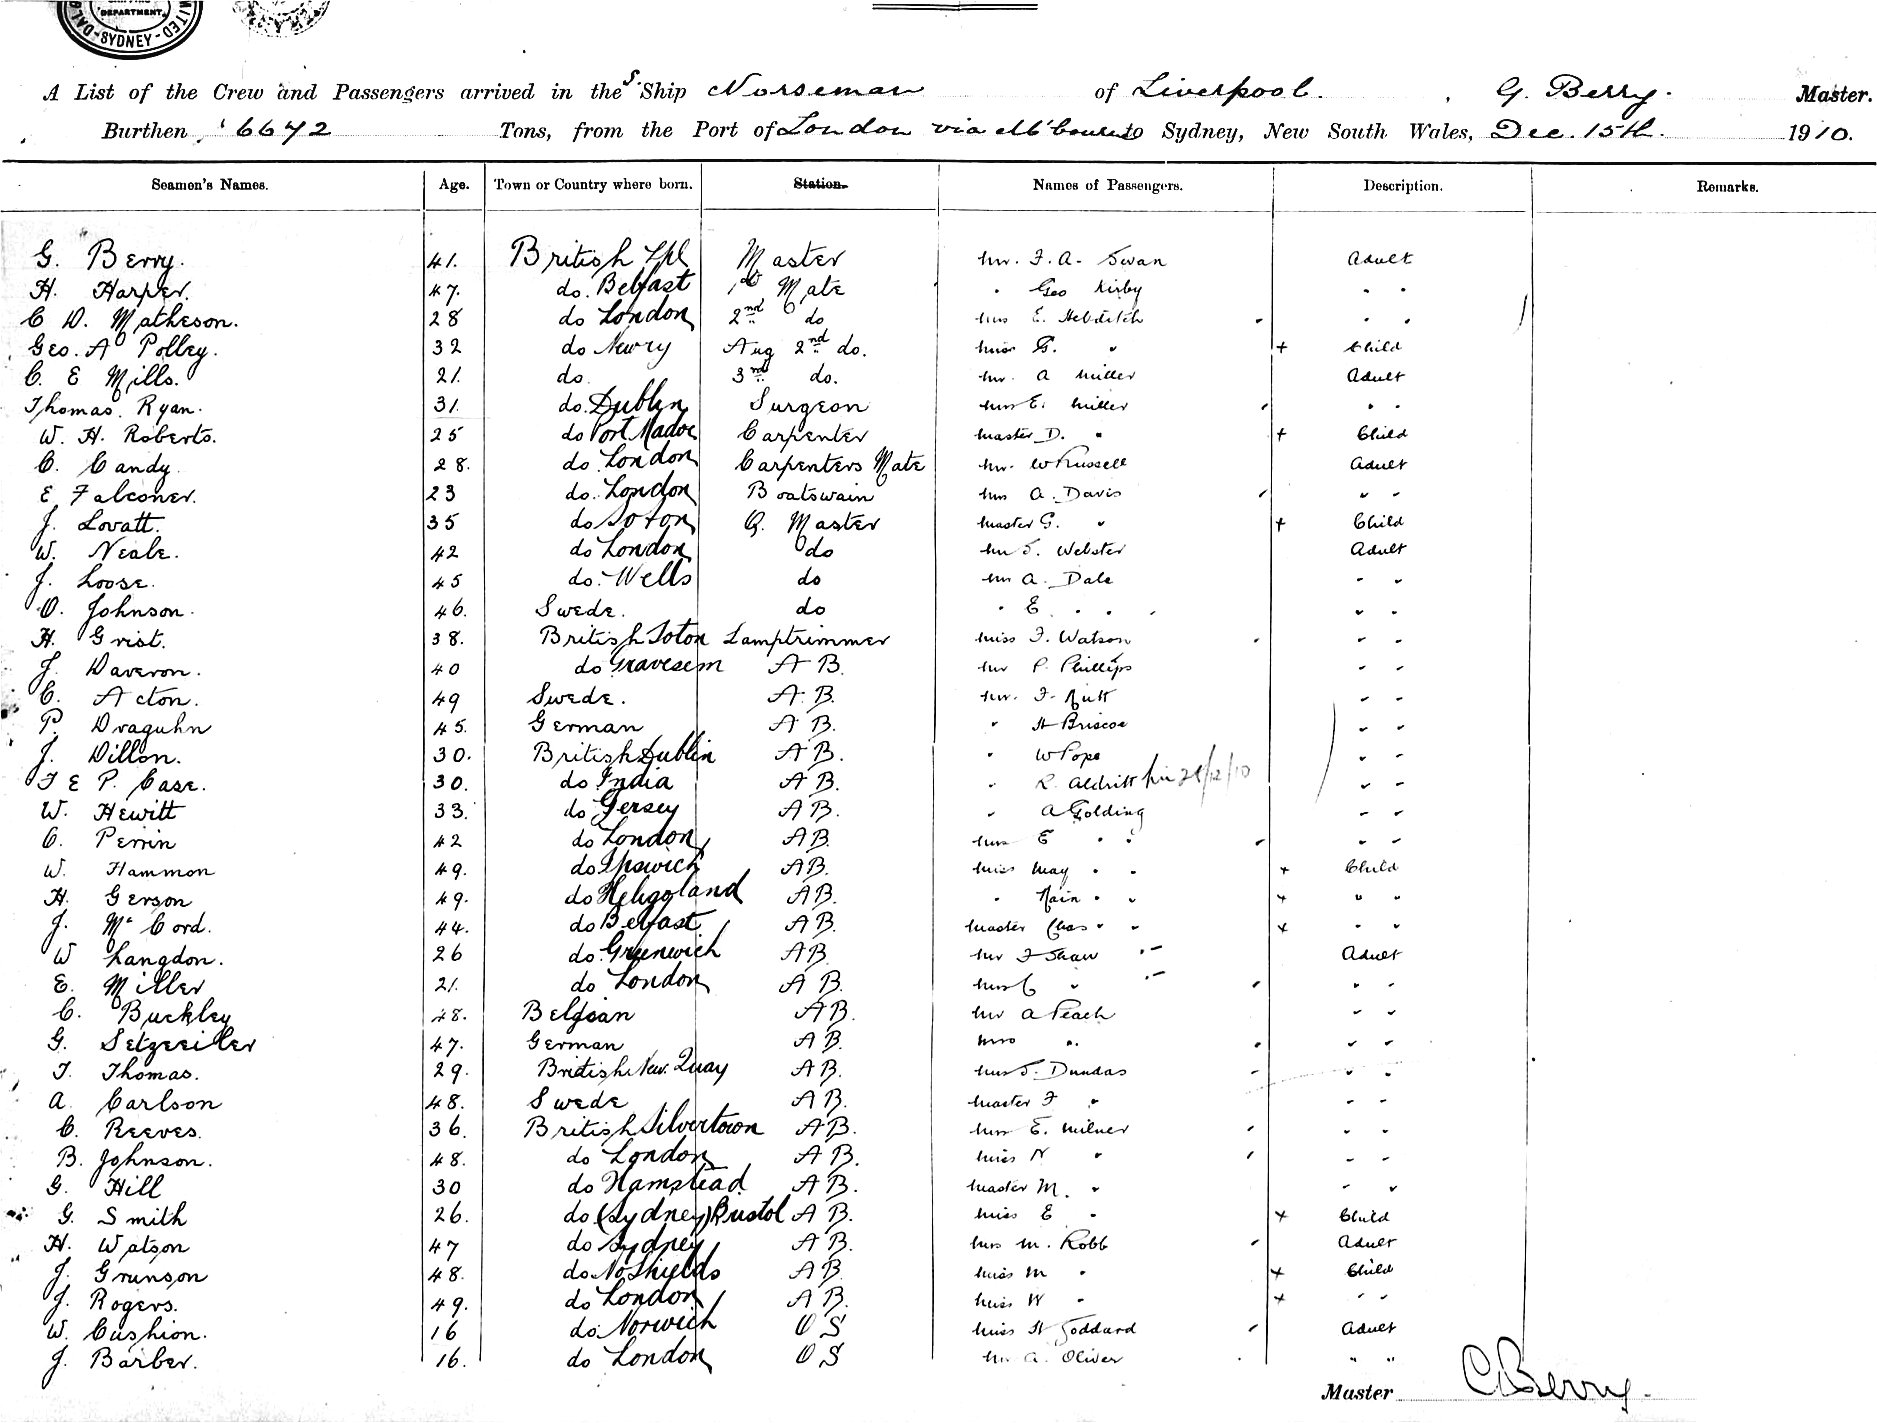 DEPARTMENT.
SYDNEY
A List of the Crew and Passengers arrived in the S. Ship Norseman of Liverpool. , G. Berry. Master.
Burthen 6642 Tons, from the Port of London via to Sydney, New South Wales, Dec. 15th. 1910.
Seamen's Names. Age. Town or Country where born. Station. Names of Passengers. Description. Remarks.
G. Berry. 41. British Lpl Master Mr. F. A. Swan Adult
H. Harper. 47. do. Belfast 1st Mate " Geo Kirby " "
C D. Matheson. 28 do London 2nd do Mrs E. Hebditch " "
Geo. A Polley. 32 do Newry Aug 2nd do. Miss G. " + Child
C. E Mills. 21. do. 3rd do. Mr. A Miller Adult
Thomas. Ryan. 31. do. Dublin Surgeon Mrs E. Miller " "
W. H. Roberts. 25 do Port Madoc Carpenter Master D. " + Child
C. Candy. 28. do. London Carpenters Mate Mr. W Russell Adult
E Falconer. 23 do. London Boatswain Mrs A. Davis " "
J. Lovatt. 35 do Soton Q. Master Master G. " + Child
W. Neale. 42 do London do Mr S. Webster Adult
J. Loose. 45 do. Wells do Mr A. Dale " "
O. Johnson. 46. Swede. do " E. " " " "
H. Grist. 38. British Soton Lamptrimmer Miss F. Watson " "
J. Daveron. 40 do A B. Mr P. Phillips " "
C. Acton. 49 Swede. A. B. Mr. F. Nutt " "
P. Draguhn 45. German A B. " H Briscoe " "
J. Dillon. 30. British Dublin A B. " W Pope " "
F E P. Case. 30. do India A B. " R. Aldritt 28/12/10 " "
W. Hewitt 33. do Jersey A B. " A Golding " "
C. Perrin 42 do London A B. Mrs E " " " "
W. Hammon 49. do Ipswich A B. Miss May " " + Child
H. Gerson 49. do Heligoland A B. " " " + " "
J. McCord. 44. do Belfast A B. Master Chas " " + " "
W Langdon. 26 do. Greenwich A B. Mr F Shaw Adult
E. Miller 21. do London A B. Mrs C " " "
C. Buckley 48. Belgian A B. Mr A Peach " "
G. 47. German A B. Mrs " " "
T. Thomas. 29. British New Quay A B. Mrs S. Dundas " "
A. Carlson 48. Swede A B. Master F " " "
C. Reeves. 36. British Silvertown A B. Mrs E. Milner " "
B. Johnson. 48. do London A B. Miss N " " "
G. Hill 30 do Hampstead A B. Master M. " " "
G. Smith 26. do (Sydney) Bristol A B. Miss E " + Child
H. Watson 47 do Sydney A B. Mrs M. Robb Adult
J. Grunson 48. do No Shields A B. Miss M " + Child
J. Rogers. 49. do London A B. Miss W " + " "
W. Cushion. 16 do. Norwich O S Miss H Goddard Adult
J. Barber. 16. do London O S Mr A. Oliver " "
Master G Berry.